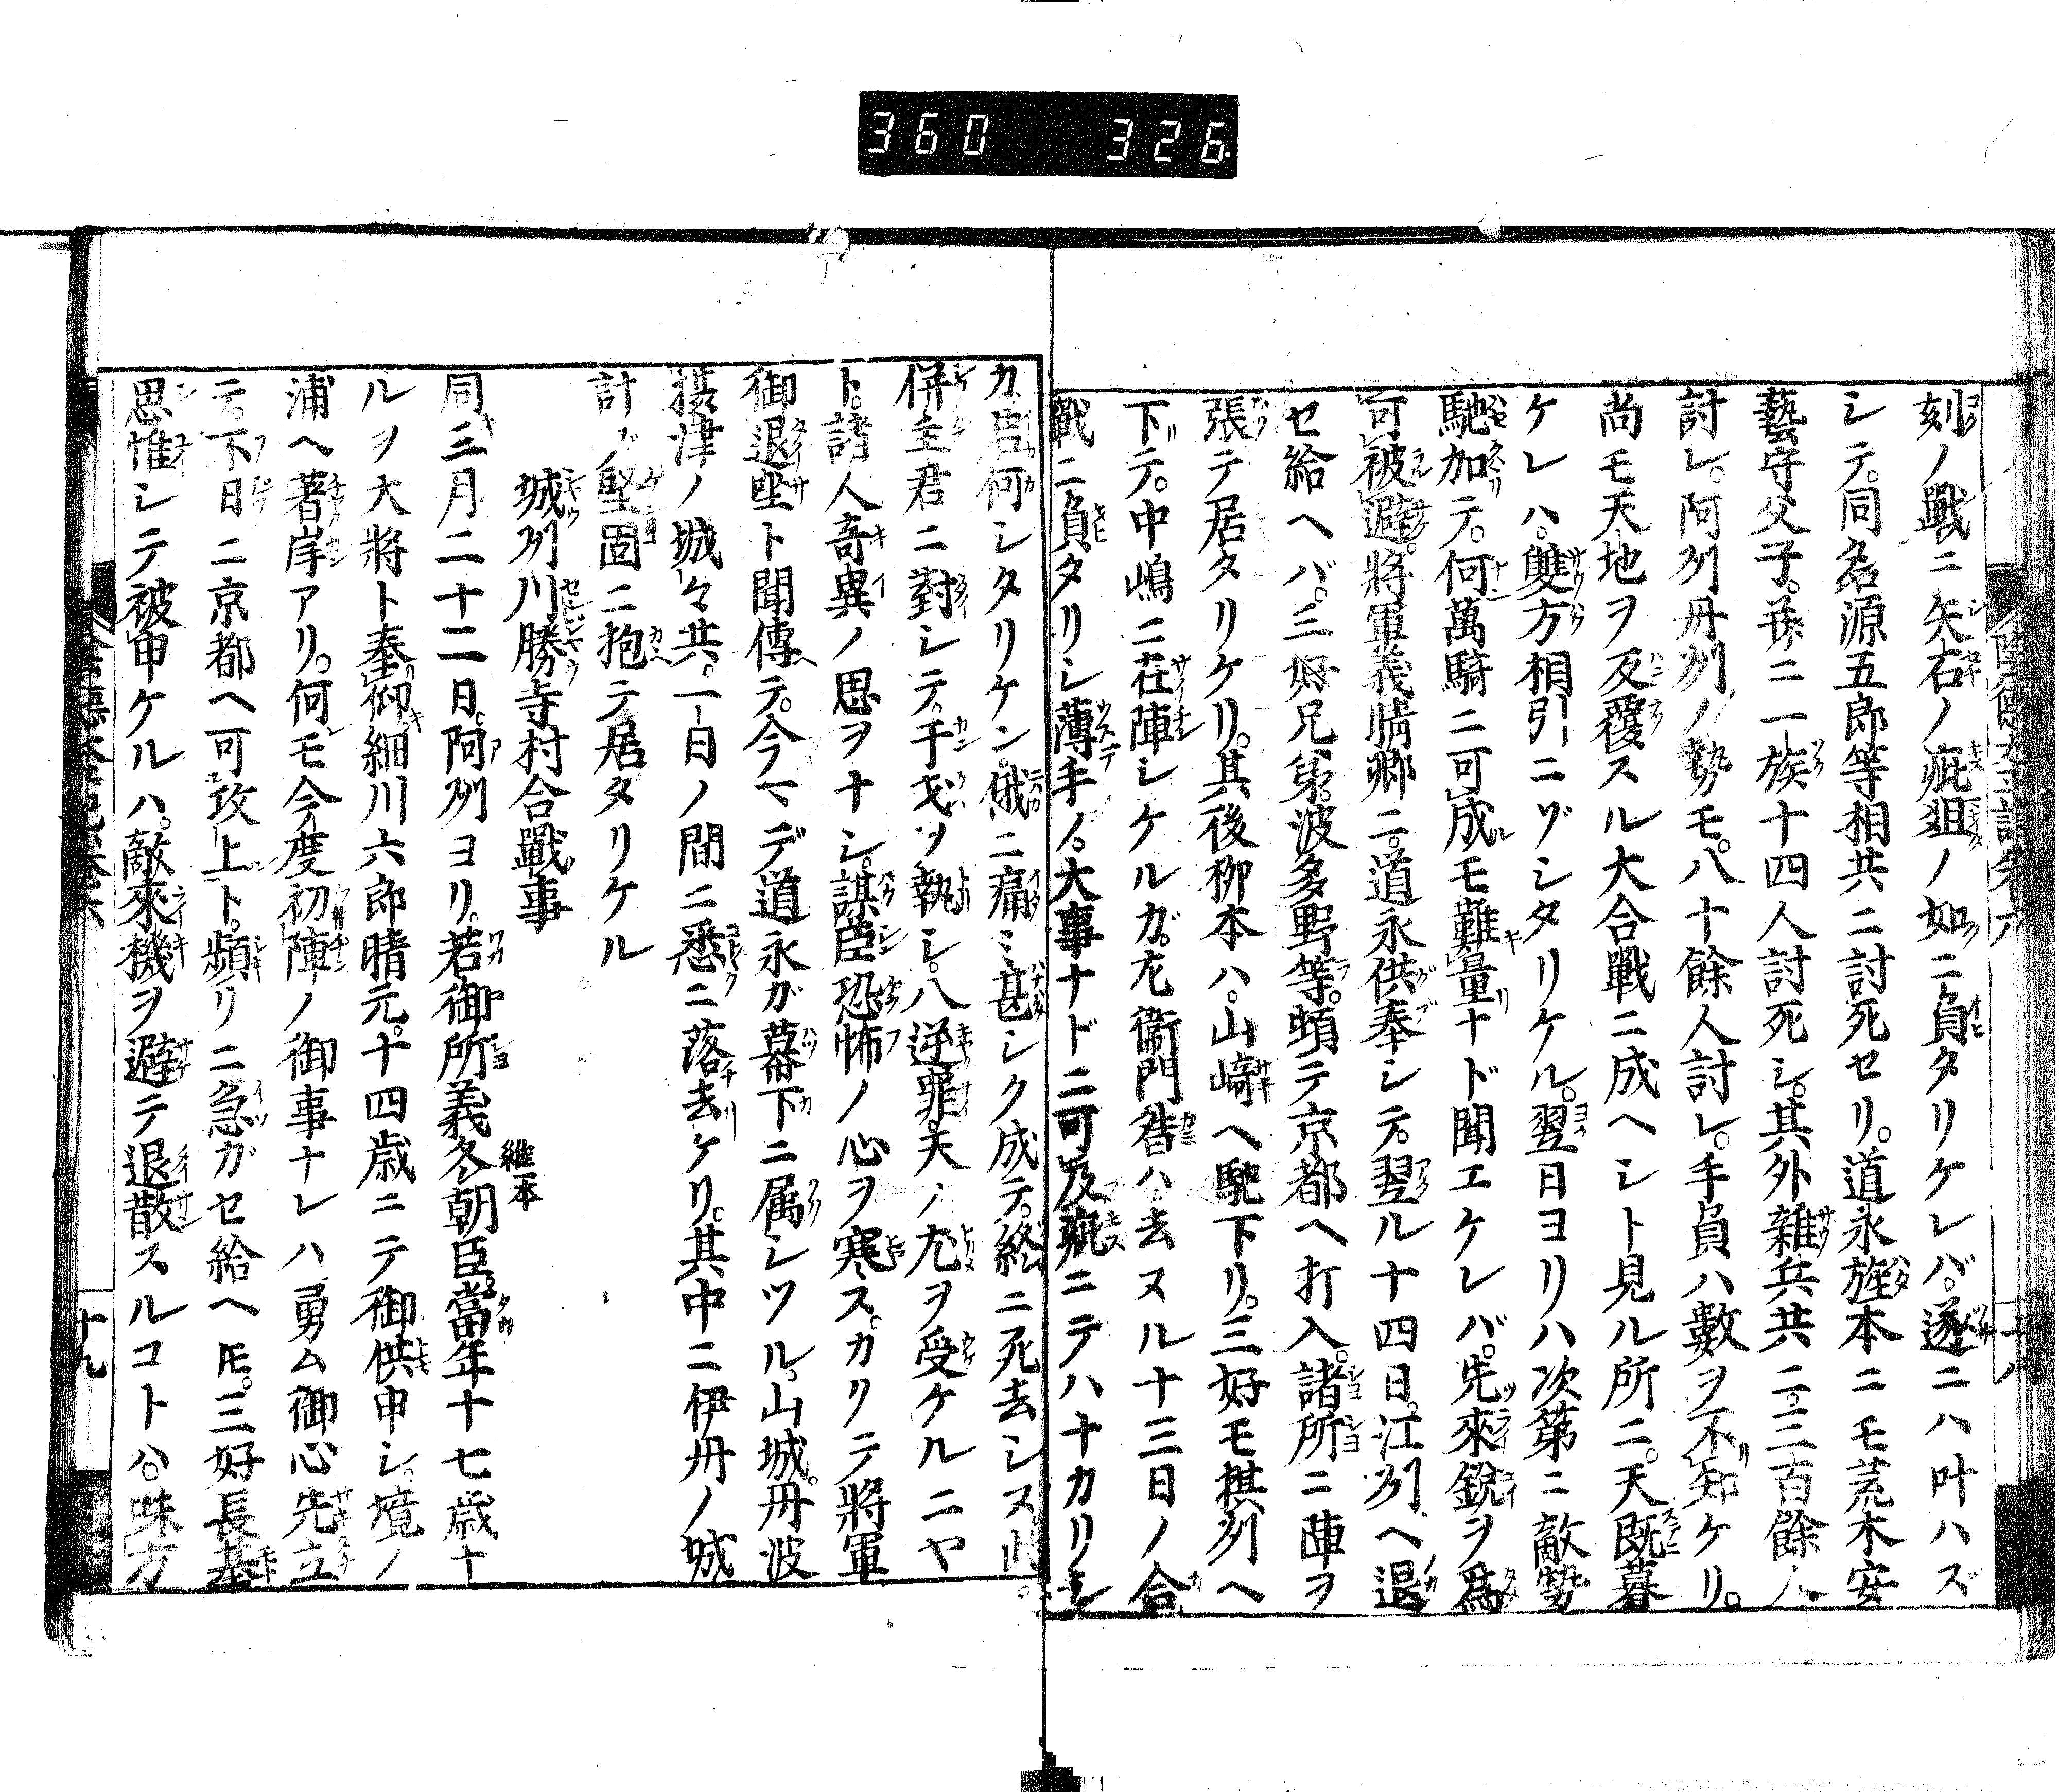 360 326
刻ノ戰ニ矢石ノ疵狙ノ如ニ負タリケレバ。遂ニハ叶ハズ
シテ。同名源五郎等相共ニ討死セリ。道永旌本ニモ荒木安
藝守父子。幷ニ一族十四人討死シ。其外雜兵共ニ。三百餘人
討レ。阿刕丹刕ノ勢モ。八十餘人討レ。手負ハ數ヲ不知ケリ。
尚モ天地ヲ反覆スル大合戰ニ成ヘシト見ル所ニ。天既暮
ケレハ。雙方相引ニヅシタリケル。翌日ヨリハ次第ニ敵勢
馳加テ。何萬騎ニ可成モ難量ナド聞エケレバ。先來銳ヲ爲
可被避。將軍義晴卿ニ。道永供奉シテ。翌ル十四日。江刕ヘ退
セ給ヘバ。三好兄弟。波多野等。頓テ京都ヘ打入。諸所ニ陣ヲ
張テ居タリケリ。其後柳本ハ。山﨑ヘ馳下リ。三好モ攝刕ヘ
下テ。中嶋ニ在陣シケルガ。左衞門督ハ去ヌル十三日ノ合
戰ニ負タリシ薄手ノ。大事ナドニ可及疵ニテハナカリシ
カ。豈何シタリケン。俄ニ痛ミ甚シク成テ。終ニ死去シヌ。此
併主君ニ對シテ。干戈ヲ執シ。八逆罪。天ノ尤ヲ受ケルニヤ
ト。諸人奇異ノ思ヲナシ。謀臣恐怖ノ心ヲ寒ス。カリテ將軍
御退座ト聞傳テ。今マデ道永ガ幕下ニ属シツル。山城。丹波
攝津ノ城々共。一日ノ間ニ悉ニ落去ケリ。其中ニ伊丹ノ城
計ノ堅固ニ抱テ居タリケル
城刕川勝寺村合戰事
同三月二十二日。阿刕ヨリ。若御所義冬朝臣。當年十七歲ナ
維一本
ルヲ大將ト奉仰。細川六郎晴元。十四歲ニテ御供申シ。境ノ
浦ヘ著岸アリ。何モ今度初陣ノ御事ナレハ勇ム御心先立
テ。下日ニ京都ヘ可攻上ト。頻リニ急ガセ給ヘ𪜈。三好長基
思惟シテ被申ケルハ。敵來機ヲ避テ退散スルコトハ。味方
十九